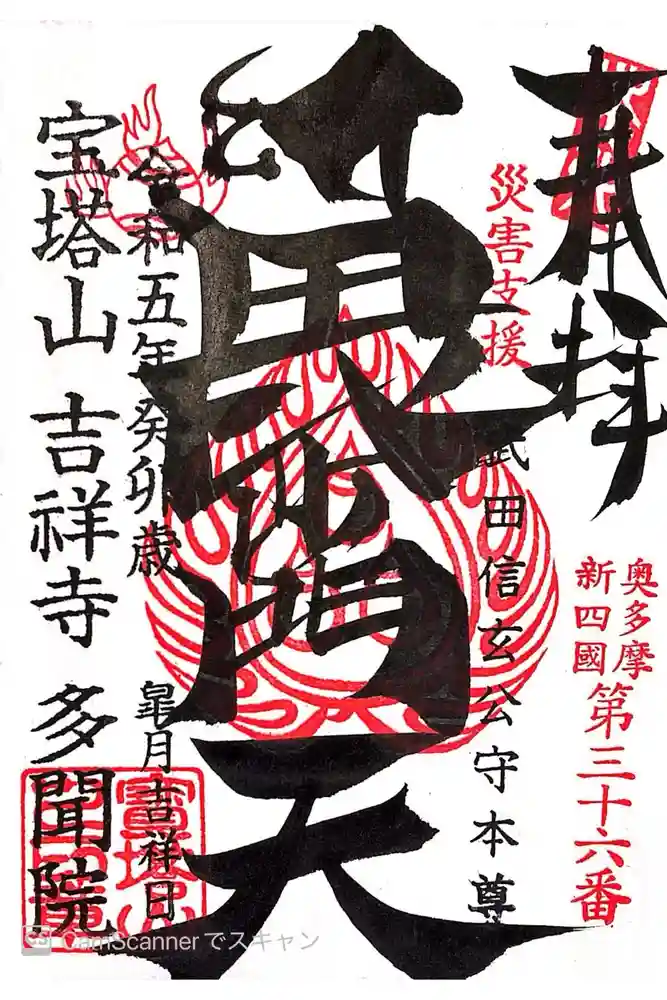 奉拝
奥多摩
新四國
第三十六番
災害支援
武田信玄公守本尊
毘沙門天
令和五年癸卯歳
皐月吉祥日
宝塔山 吉祥寺 多聞院
CamScannerでスキャン